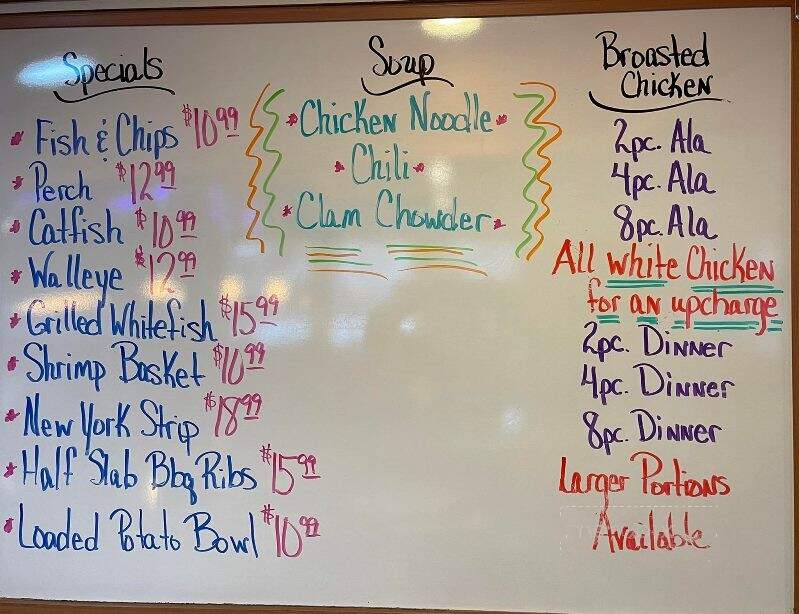 Specials
* Fish & Chips $10.99
* Perch $12.99
* Catfish $10.99
* Walleye $12.99
* Grilled Whitefish $15.99
* Shrimp Basket $10.99
* New York Strip $18.99
* Half Slab Bbq Ribs $15.99
* Loaded Potato Bowl $10.99
Soup
* Chicken Noodle *
* Chili *
* Clam Chowder *
Broasted
Chicken
2pc. Ala
4pc. Ala
8pc. Ala
All white Chicken
for an upcharge
2pc. Dinner
4pc. Dinner
8pc. Dinner
Larger Portions
Available